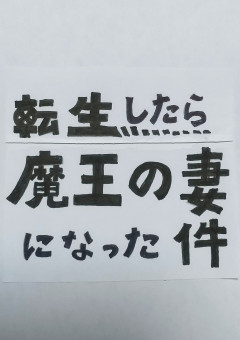 転生したら
魔王の妻
になった件